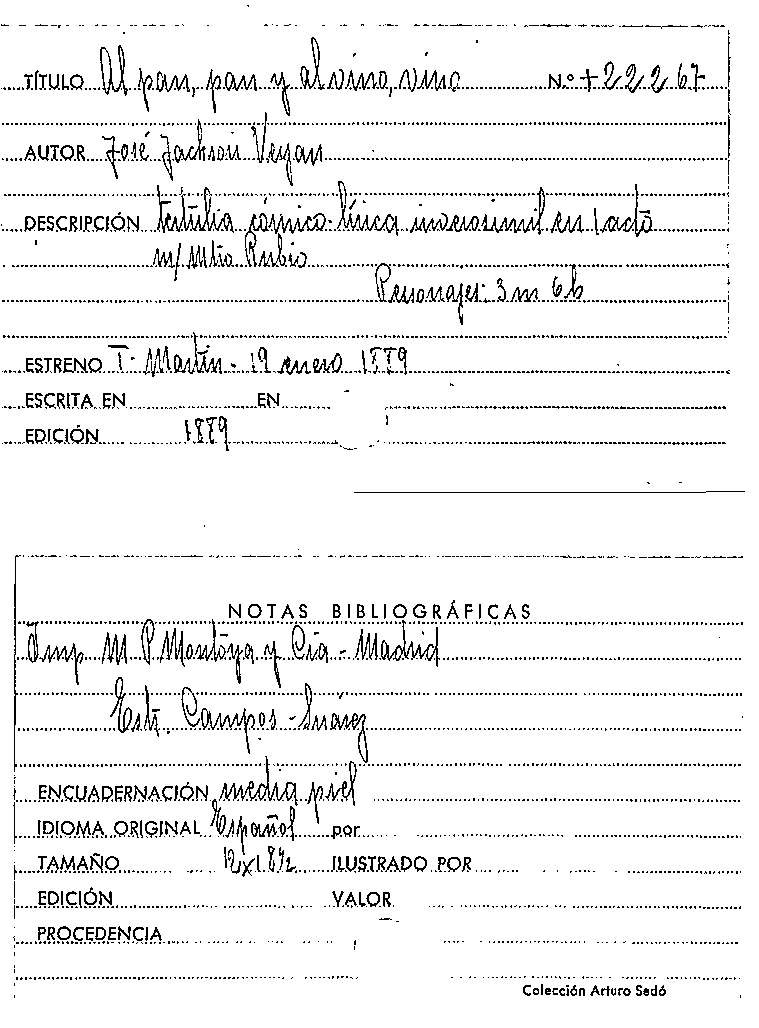 TÍTULO Al pan, pan y al vino, vino N.º +22267
AUTOR José Jackson Veyan
DESCRIPCIÓN tertulia cómico-lírica inverosimil en 1 acto
m/ Mtro Rubio
Personajes: 3m 6h
ESTRENO T. Martín - 19 enero 1889
ESCRITA EN EN
EDICIÓN 1889
NOTAS BIBLIOGRÁFICAS
Imp M P Montoya y Cía - Madrid
Estr. Campos - Suárez
ENCUADERNACIÓN media piel
IDIOMA ORIGINAL Español por
TAMAÑO 12x18½ ILUSTRADO POR
EDICIÓN VALOR
PROCEDENCIA
Colección Arturo Sedó